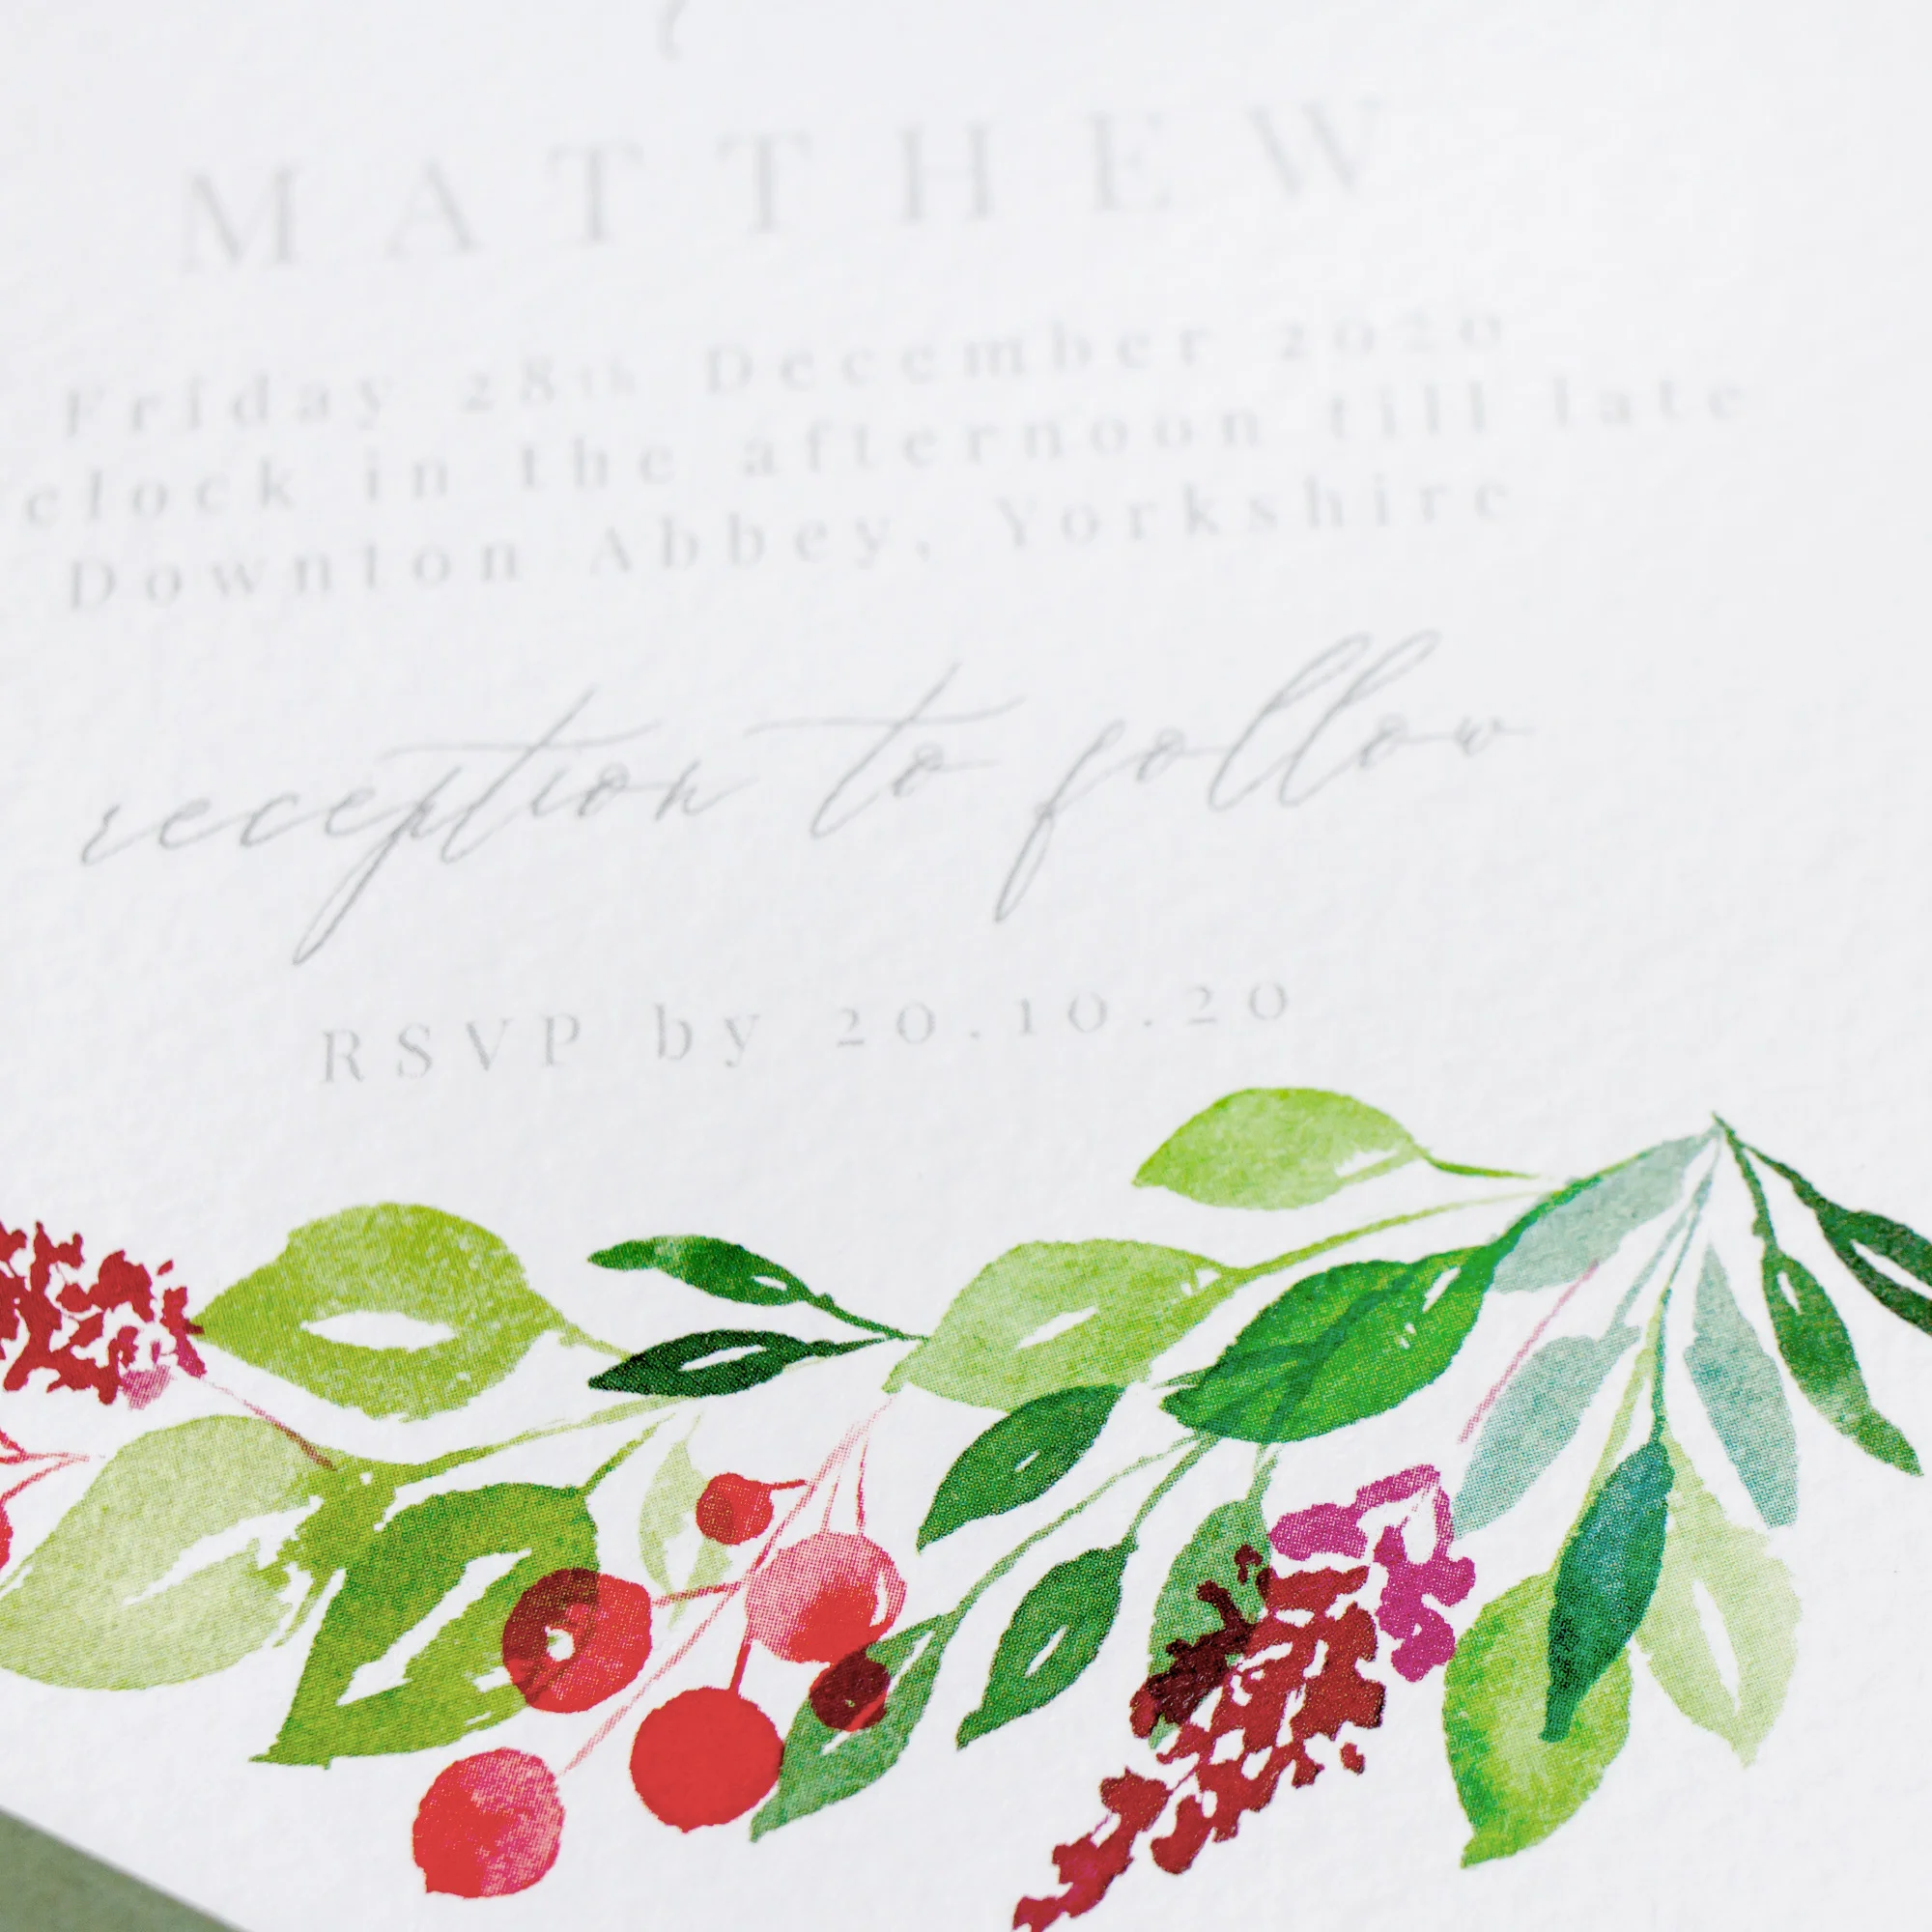 MATTHEW
Friday 28th December 2020
clock in the afternoon till late
Downton Abbey, Yorkshire
reception to follow
RSVP by 20.10.20